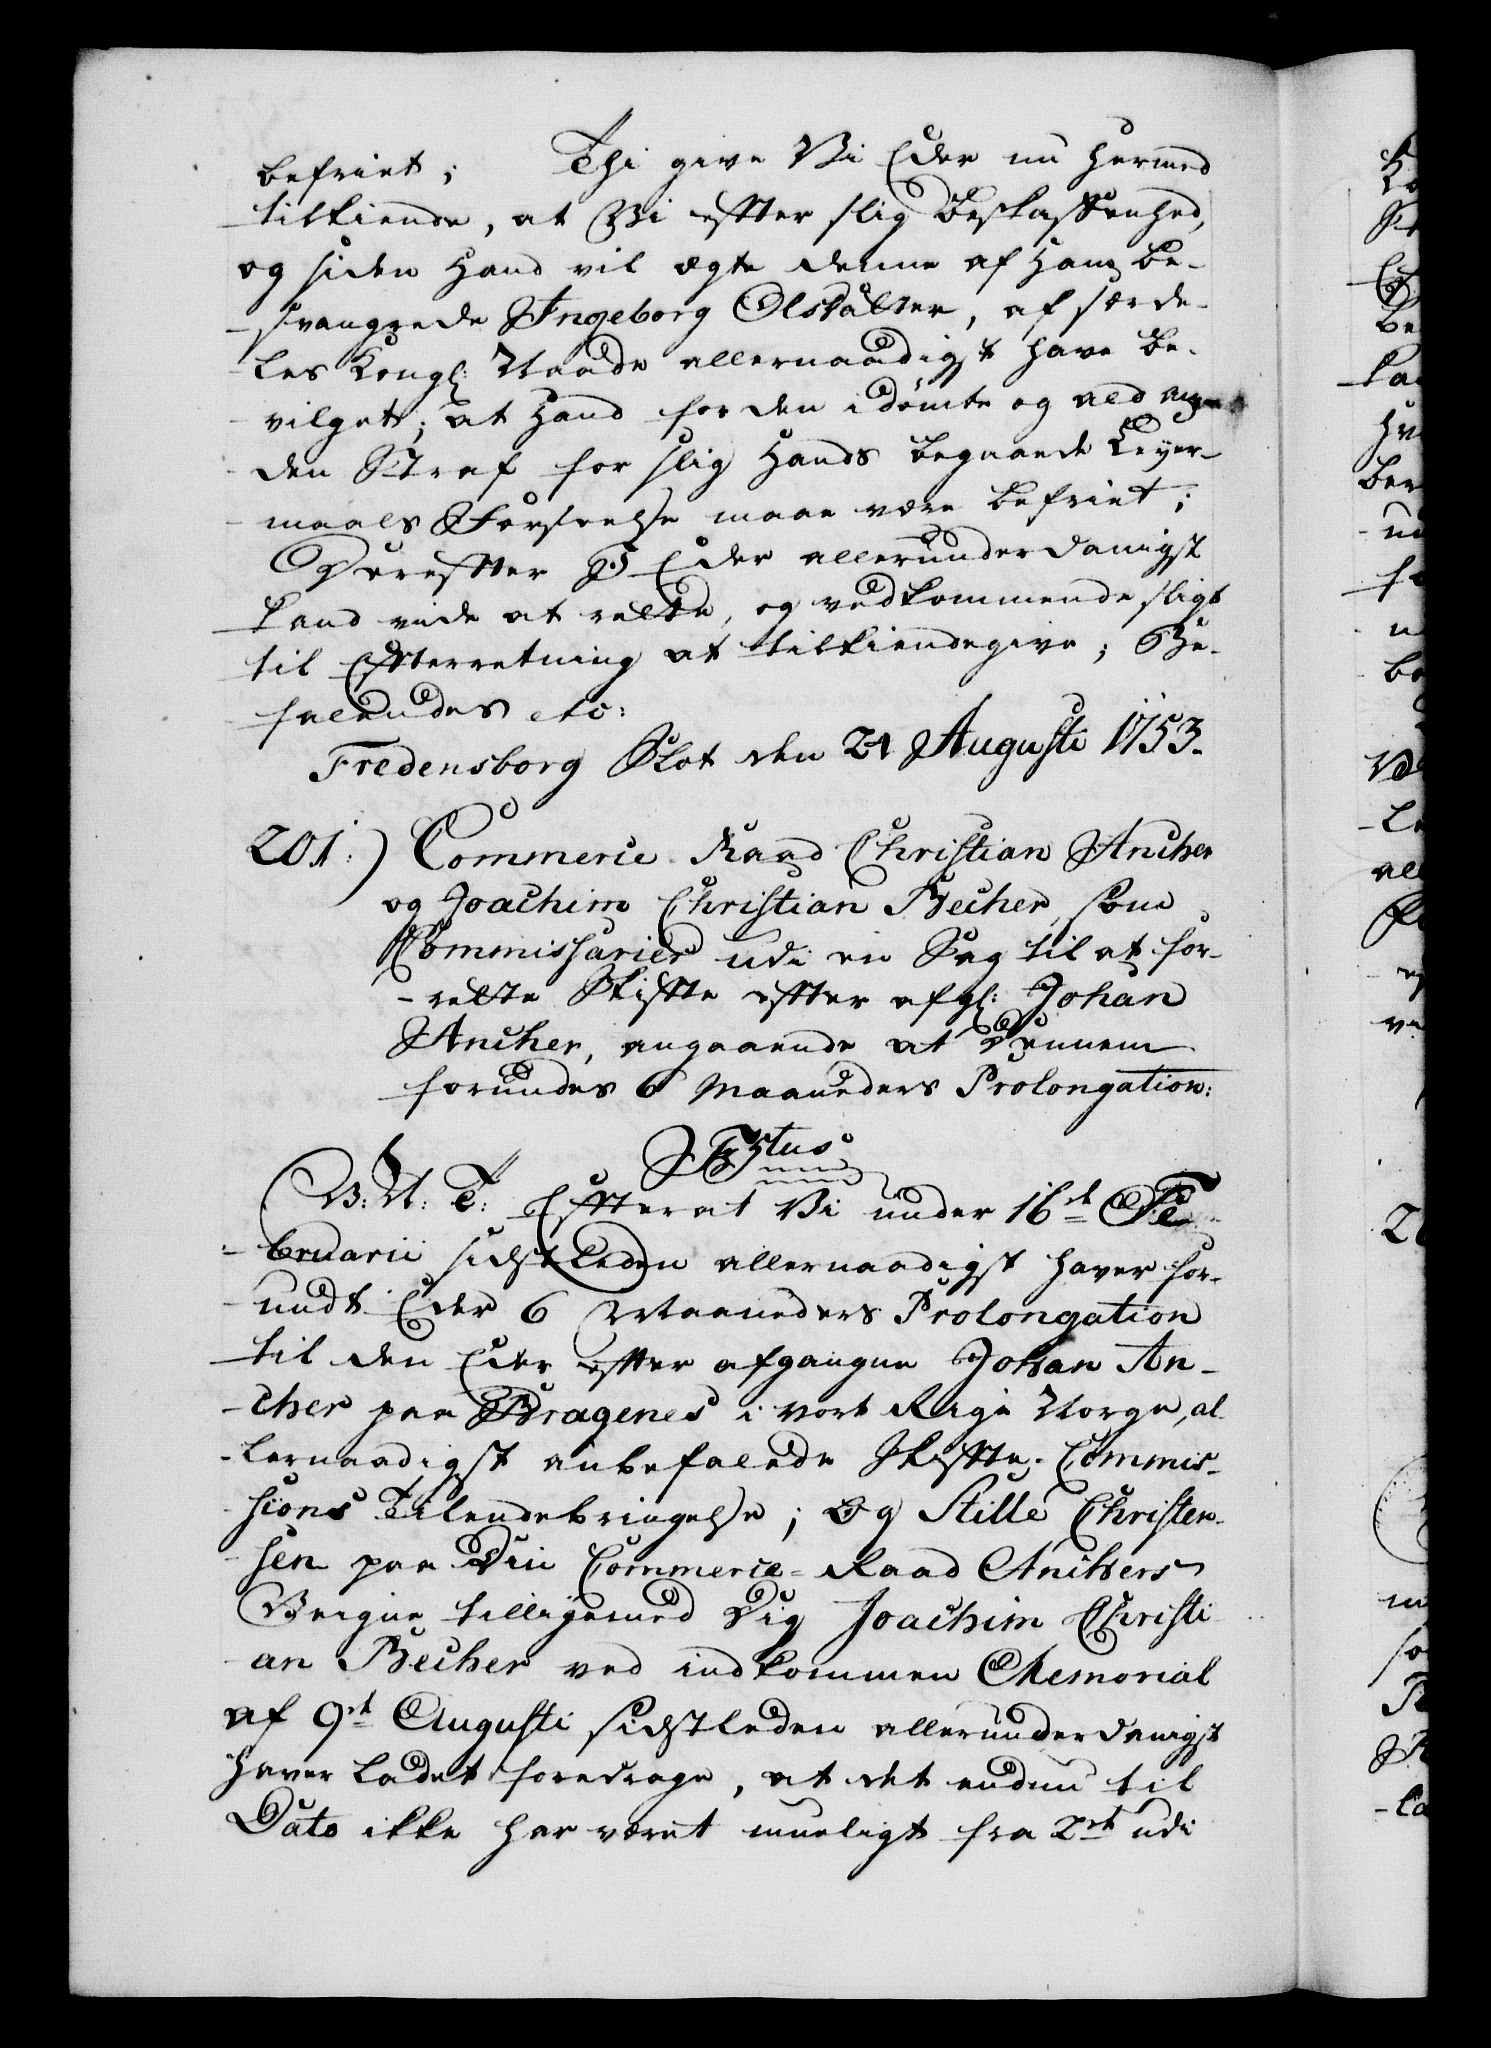 befriet; Thi give Vi Eder nu hermed
tilkiende, at Vi effter slig beskaffenhed,
og siden Hand vil ægte denne af Ham be-
svangrede Ingeborg Olsdatter, af særde-
les Kongl: Naade allernaadigst have be-
vilget; at Hand for den idømte og ald an-
den Straf for slig Hands begaaede Leyer-
maals Forseelse maae være befriet;
Hvoreffter I Eder allerunderdanigst
kand vide at rette, og vedkommende sligt
til Effterretning at tilkiendegive; Be-
falendes etc:
Fredensborg Slot den 24 Augusti 1753.
201:) Commerce Raad Christian Ancher
og Joachim Christian Becher, som
Commissarier udi en Sag til at for-
-rette Skiffte effter afgl: Johan
Ancher, angaaende at Dennem
forundes 6 Maaneders Prolongation:
F 5tus
V: A: T: Effterat Vi under 16de Fe-
-bruarii sidstleden allernaadigst haver for-
undt Eder 6 Maaneders Prolongation
til den Eder effter afgangne Johan An-
-cher paa Bragenes i vort Rige Norge, al-
-lernaadigst anbefalede Skiffte-Commis-
sions Tilendebringelse; Og Stille Christen-
sen paa Din Commerce-Raad Anchers
Vegne tilligemed Dig Joachim Christi-
an Becher ved indkommen Memorial
af 9de Augusti sidstleden allerunderdanigst
haver ladet foredrage, at det endnu til
Dato ikke har været mueligt fra 2de udi